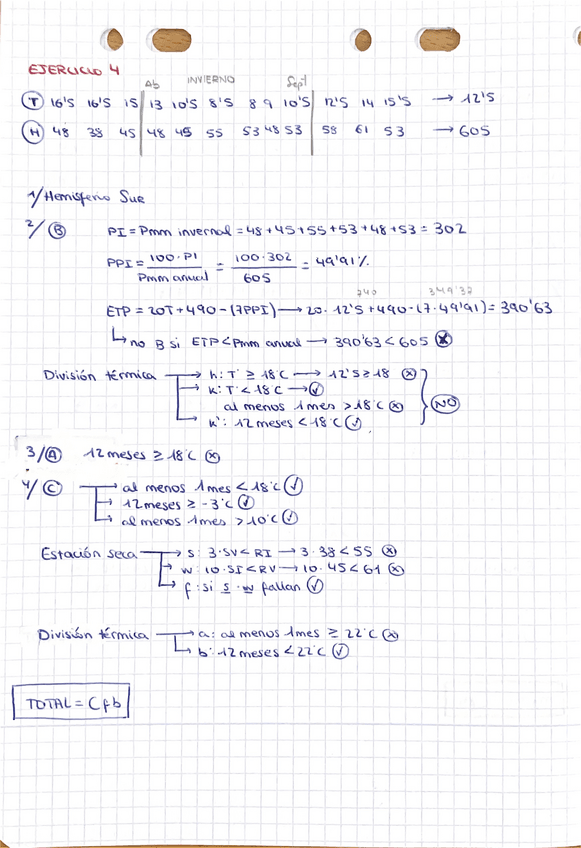 EJERCICIO 4
Ab INVIERNO Sept
T 16'5 16'5 15 13 10'5 8'5 8 9 10'5 12'5 14 15'5 → 12'5
H 48 38 45 48 45 55 53 48 53 58 61 53 → 605
1/ Hemisferio Sur
2/ B PI = Pmm invernal = 48+45+55+53+48+53 = 302
PPI = 100·PI / Pmm anual = 100·302 / 605 = 49'91%
740 349'37
ETP = 20T + 490 - (7PPI) → 20·12'5 + 490 - (7·49'91) = 390'63
↳ no B si ETP < Pmm anual → 390'63 < 605 ⊗
División térmica → h: T ≥ 18°C → 12'5 ≥ 18 ⊗
→ k: T < 18°C → ✓
al menos 1 mes > 18°C ⊗
→ k': 12 meses < 18°C ✓
NO
3/ A 12 meses ≥ 18°C ⊗
4/ C → al menos 1 mes < 18°C ✓
→ 12 meses ≥ -3°C ✓
→ al menos 1 mes > 10°C ✓
Estación seca → s: 3·SV < RI → 3·38 < 55 ⊗
→ w: 10·SI < RV → 10·45 < 61 ⊗
→ f: si s · w fallan ✓
División térmica → a: al menos 1 mes ≥ 22°C ⊗
→ b: 12 meses < 22°C ✓
TOTAL = Cfb